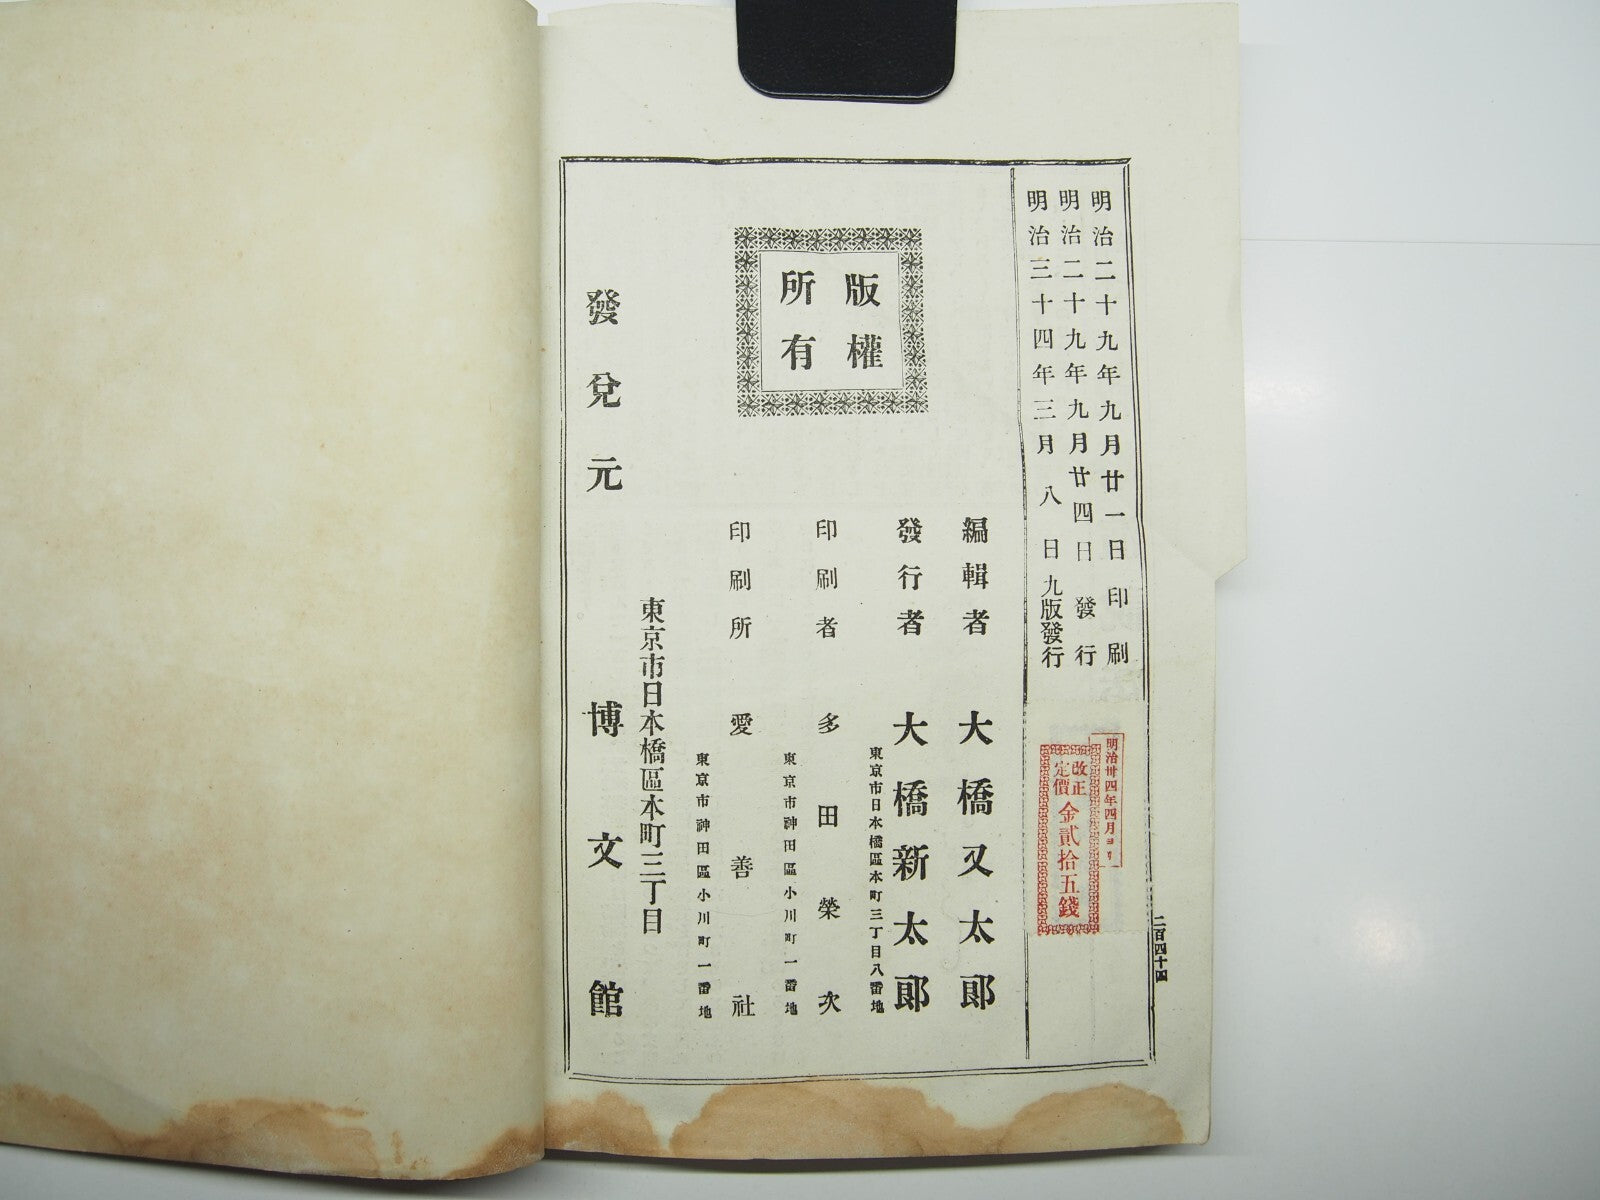 明治二十九年九月廿一日印刷
明治二十九年九月廿四日發行
明治三十四年三月八日九版發行
明治卅四年四月ヨリ
改正
定價
金貳拾五錢
二百四十四
版權
所有
編輯者 大橋又太郎
發行者 大橋新太郎
東京市日本橋區本町三丁目八番地
印刷者 多田榮次
東京市神田區小川町一番地
印刷所 愛善社
東京市神田區小川町一番地
東京市日本橋區本町三丁目
發兌元 博文館